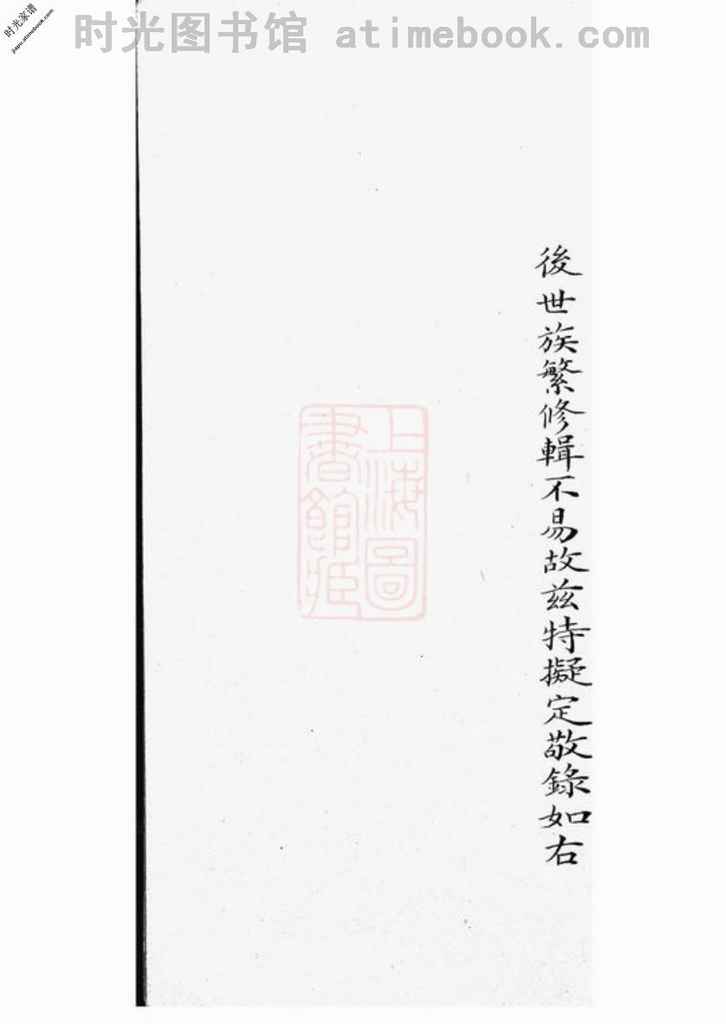 时光图书馆 atimebook.com
时光家谱
jiapu.atimebook.com
後世族繁修輯不易故茲特擬定敬錄如右
上海圖
書館藏